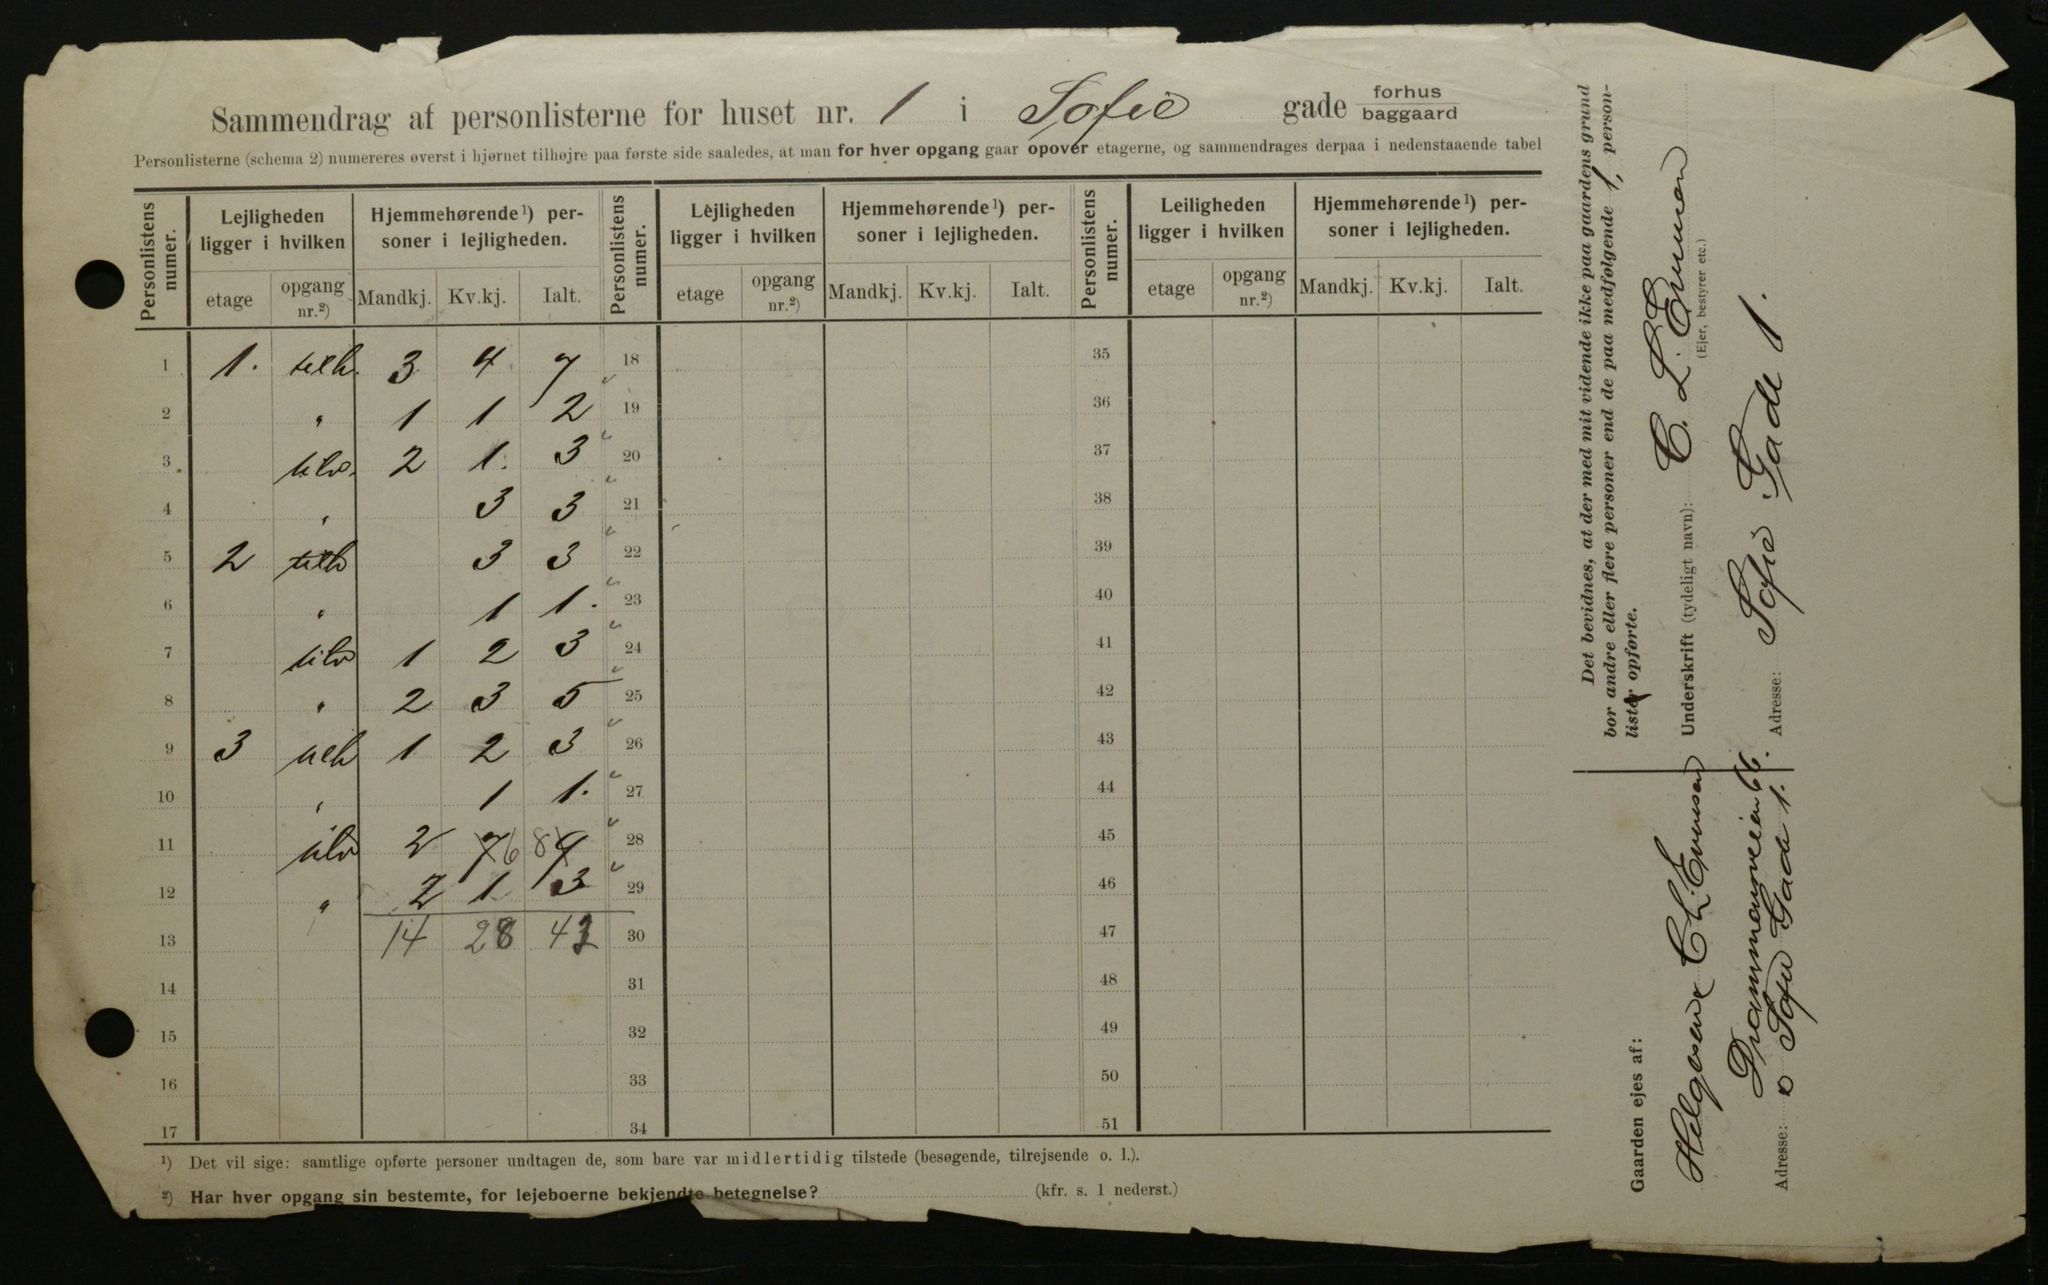 Sammendrag af personlisterne for huset nr. 1 i Sofie gade forhus baggaard
Personlisterne (schema 2) numereres øverst i hjørnet tilhøjre paa første side saaledes, at man for hver opgang gaar opover etagerne, og sammendrages derpaa i nedenstaaende tabel
Personlistens numer. Lejligheden ligger i hvilken Hjemmehørende ¹) personer i lejligheden. Personlistens numer. Lejligheden ligger i hvilken Hjemmehørende ¹) personer i lejligheden. Personlistens numer. Leiligheden ligger i hvilken Hjemmehørende ¹) personer i lejligheden.
etage opgang nr.²) Mandkj. Kv.kj. Ialt. etage opgang nr.²) Mandkj. Kv.kj. Ialt. etage opgang nr.²) Mandkj. Kv.kj. Ialt.
1 1. 3 4 7 18 35
2 " 1 1 2 19 36
3 2 1. 3 20 37
4 " 3 3 21 38
5 2 3 3 22 39
6 " 1 1. 23 40
7 1 2 3 24 41
8 " 2 3 5 25 42
9 3 1 2 3 26 43
10 " 1 1. 27 44
11 2 7 6 8 9 28 45
12 " 2 1 3 29 46
13 14 28 42 30 47
14 31 48
15 32 49
16 33 50
17 34 51
¹) Det vil sige: samtlige opførte personer undtagen de, som bare var midlertidig tilstede (besøgende, tilrejsende o. l.).
²) Har hver opgang sin bestemte, for lejeboerne bekjendte betegnelse? (kfr. s. 1 nederst.)
Det bevidnes, at der med mit vidende ikke paa gaardens grund
bor andre eller flere personer end de paa medfølgende 1, person-
lister opførte.
Underskrift (tydeligt navn): C. L. Evensen
(Ejer, bestyrer etc.)
Adresse: Sofie Gade 1.
Gaarden ejes af:
Helgesen & C L. Evensen
Drammensveien 66.
Adresse: o Sofie Gade 1.